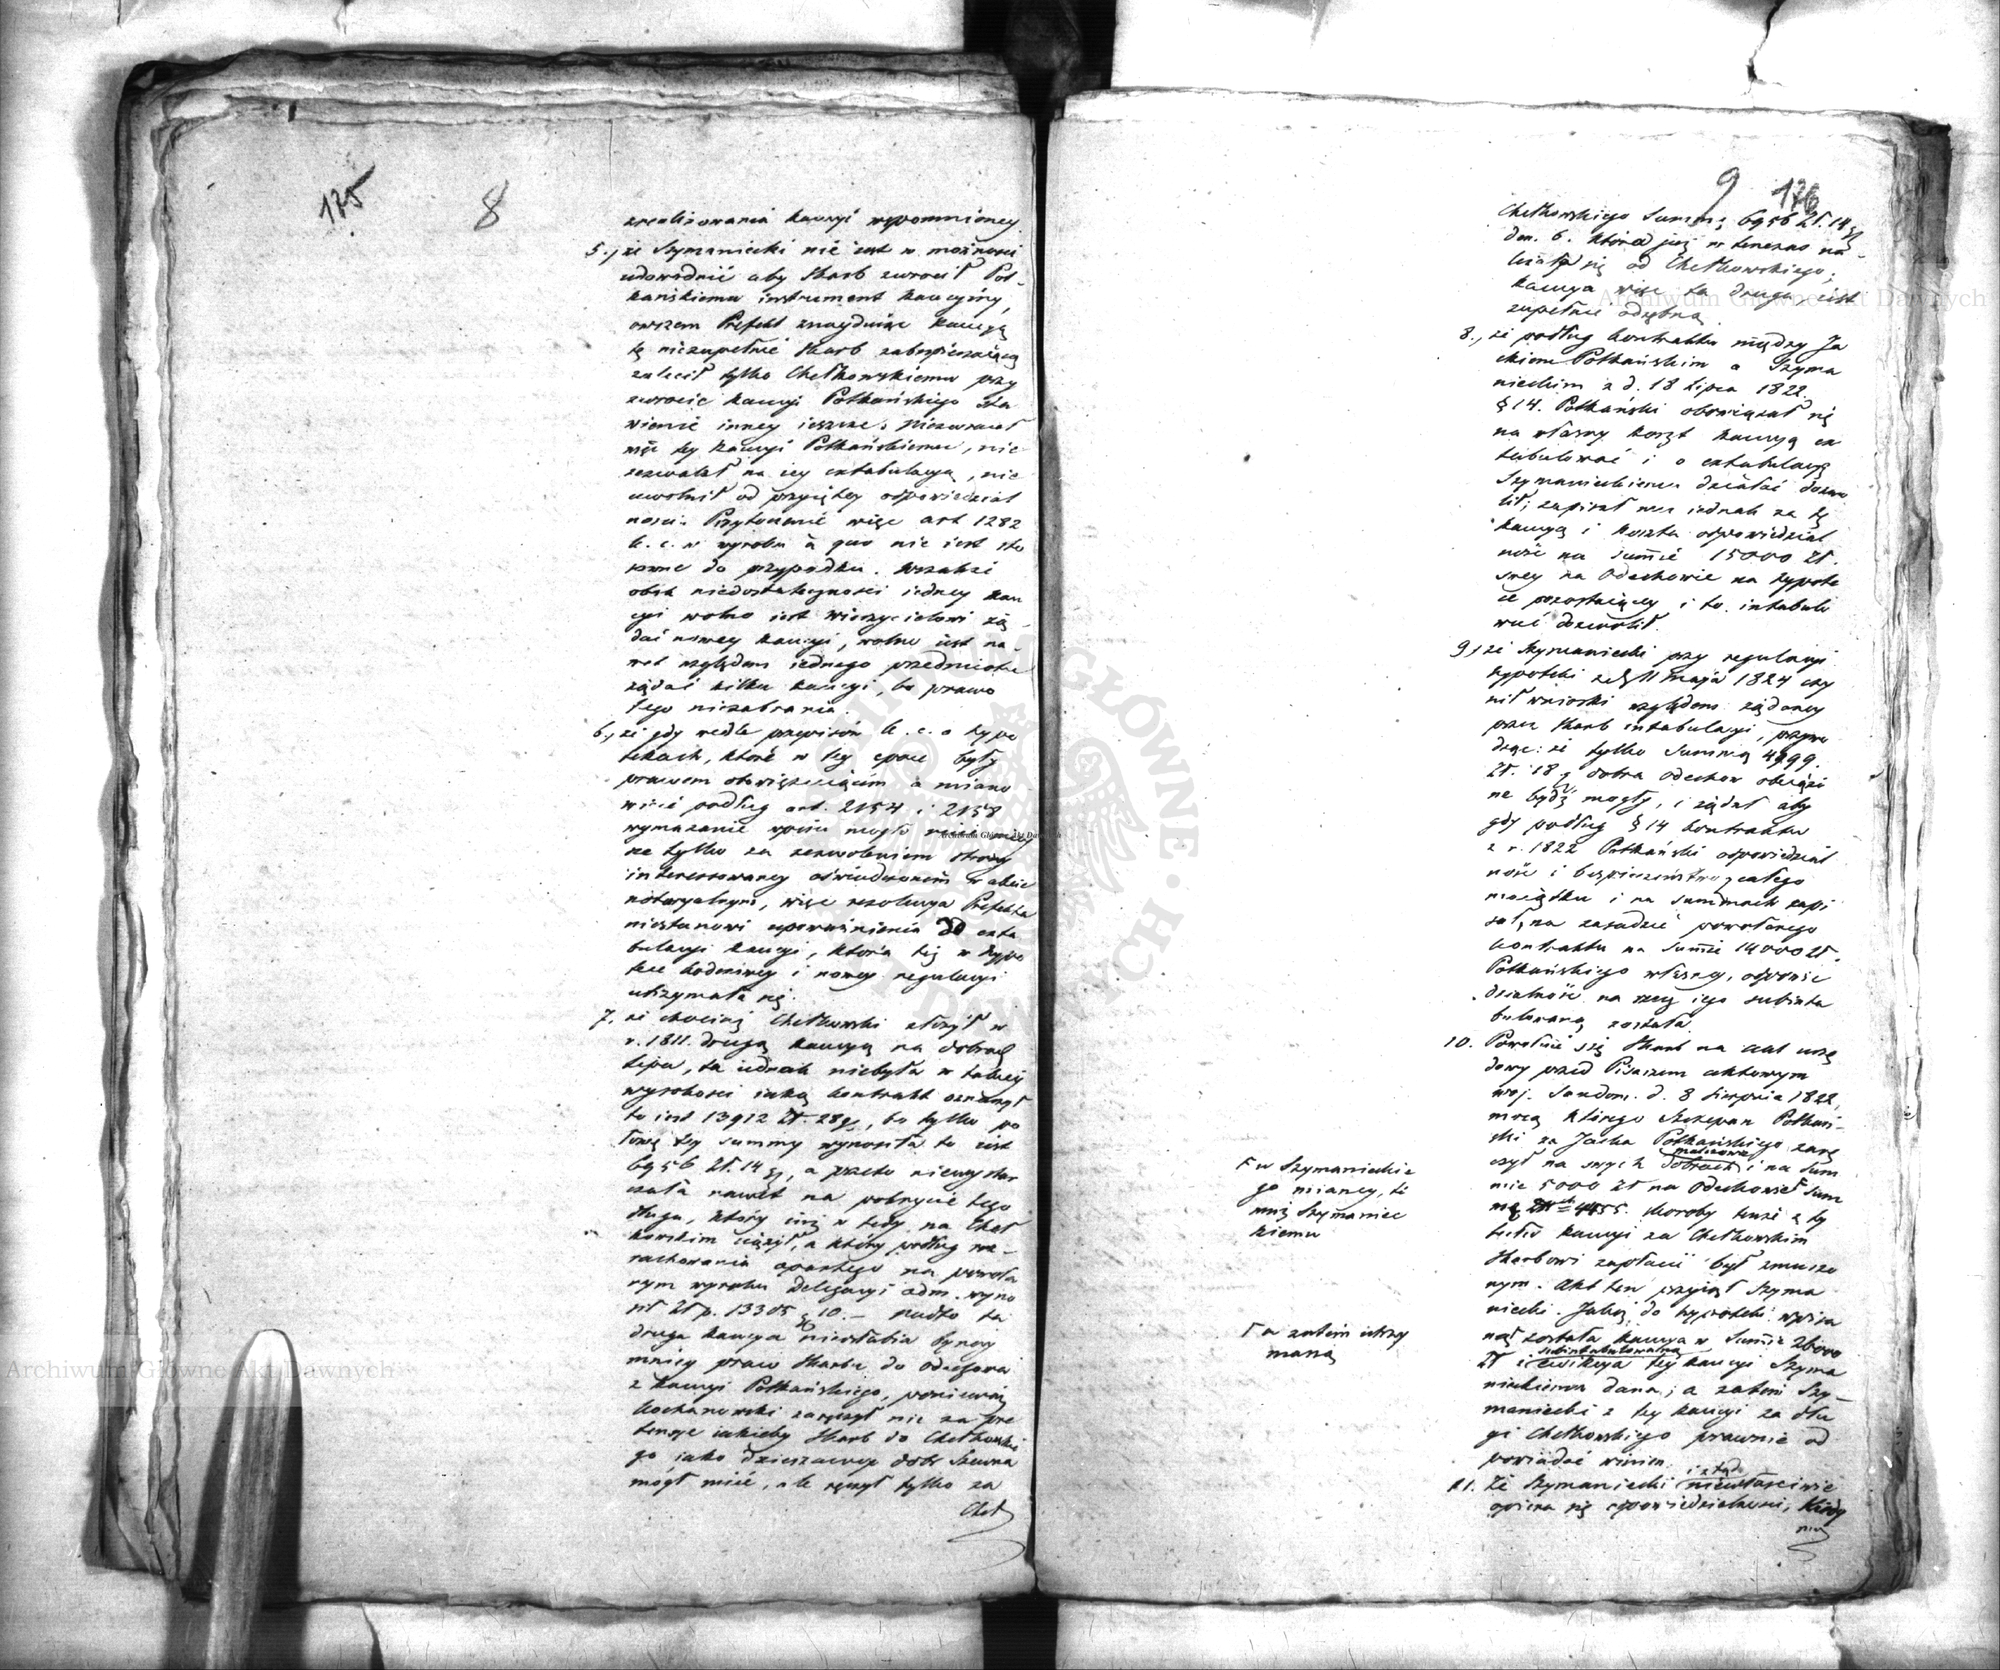 175
8
zrealizowania kaucyi wspomnioney
5., że Szymaniecki nie iest w możności
udowodnić aby Skarb zwrocił Pot-
kańskiemu instrument kaucyiny,
owszem Prefekt znayduiąc kaucyą
tę niezupełnie Skarb zabespieczaiącą
zalecił tylko Chełkowskiemu przy
zwrocie kaucyi Potkańskiego sta
wienie inney ieszcze. Niezwracał
więc tey kaucyi Potkańskiemu, nie
zezwalał na iey extabulacyą, nie
uwolnił od przyiętey odpowiedzial
nosci. Przytoczenie więc art 1282
k. c. w wyroku à quo nie iest sto
sowne do przypadku. Wszakże
obok niedostateczności iedney kau
cyi wolno iest wierzycielowi żą-
dać nowey kaucyi, wolno iest na-
wet względem iednego przedmiotu
żądać kilku kaucyi, bo prawo
tego niezabrania.
6., że gdy wedle przepisów k. c. o hypo
tekach, które w tey epoce były
prawem obowiązuiącem a miano
wicie podług art. 2154 i 2158
wymazanie wpisu mogło
ne tylko za zezwoleniem strony
interessowaney oświadczonem w akcie
notaryalnym, więc rezolucya Prefekta
niestanowi upoważnienia do exta
bulacyi kaucyi, która też w hypo
tece
i nowey regulacyi
utrzymała się.
7, że chociaż Chełkowski złożył w
r. 1811. drugą kaucyą na dobrach
Lipa, ta iednak niebyła w takiey
wysokosci iaką kontrakt oznaczył
to iest 13912 zł. 28 gr, bo tylko po
łowę tey summy wynosiła to iest
6956 zł. 14 gr, a przeto niewystar
czała nawet na pokrycie tego
długu, który iuż w tedy na Cheł
kowskim ciążył, a który podług ob-
rachowania opartego na powoła
nym wyroku Delegacyi adm. wyno
sił złp. 13305 gr 10. — nadto ta
druga kaucya nieosłabia bynay
mniey praw Skarbu do Odechowa
z kaucyi Potkańskiego, ponieważ
Kochanowski zaręczył nie za pre
tensye iakieby Skarb do Chełkowskie
go jako dzierżawcy dóbr
mógł mieć, ale ręczył tylko za
Cheł
9 176
Chełkowskiego Summę 6956 zł. 14 gr
den. 6. która już w tenczas na-
leżała się od Chełkowskiego;
kaucya więc ta druga iest
zupełnie odrębną.
8., że podług kontraktu między Ja
ckiem Potkańskim a Szyma
nieckim z d. 18 Lipca 1822.
§ 14. Potkański obowiązał się
na własny koszt kaucyą ex
tabulować i o extabulacyą
Szymanieckiemu działać dozwo
lił; zapisał mu iednak za tę
kaucyą i koszta odpowiedzial
ność na summie 15000 zł.
swey na Odechowie na hypote
ce pozostaiącey i to intabulo
wać dozwolił.
9, że Szymaniecki przy regulacyi
hypoteki z d. 11 maja 1824 czy
nił wnioski względem żądaney
przez Skarb intabulacyi, przywo
dząc: że tylko Summą 4999.
zł. 18 gr dobra Odechow obciążo
ne bydź mogły, i żądał aby
gdy podług § 14 kontraktu
z r. 1822 Potkański odpowiedzial
ność i bespieczeństwo z całego
maiątku i na summach zapi
sał, na zasadzie powołanego
kontraktu na Summie 14000 zł.
Potkańskiego własney, odpowie
dzialność na rzecz iego subinta
bulowaną została.
10. Powołuie się Skarb na akt urzę
dowy przed Pisarzem aktowym
woj. Sandom. d. 8 Sierpnia 1822,
mocą którego Szczepan Potkań-
ski za Jacka Potkańskiego zarę
czył na swych dobrach i na Sum
mie 5000 zł na Odechowie Sum
mę 4455. ktoroby tenże z ty
tułu kaucyi za Chełkowskim
Skarbowi zapłacić był zmuszo
nym. Akt ten przyiął Szyma
niecki. Jakoż do hypoteki wpisa
ną została kaucya w Summie 26000
subintabulowalną
zł i ewikcya tey kaucyi Szyma
nieckiemu dana, a zatem Szy-
maniecki z tey kaucyi za dłu
gi Chełkowskiego prawnie od
powiadać winien.
11. Że Szymaniecki niewłaściwie
i ztąd
opiera się odpowiedzialnosci, kiedy
F w Szymanieckie
go mianey, te
muż Szymaniec
kiemu
F a zatem utrzy
maną